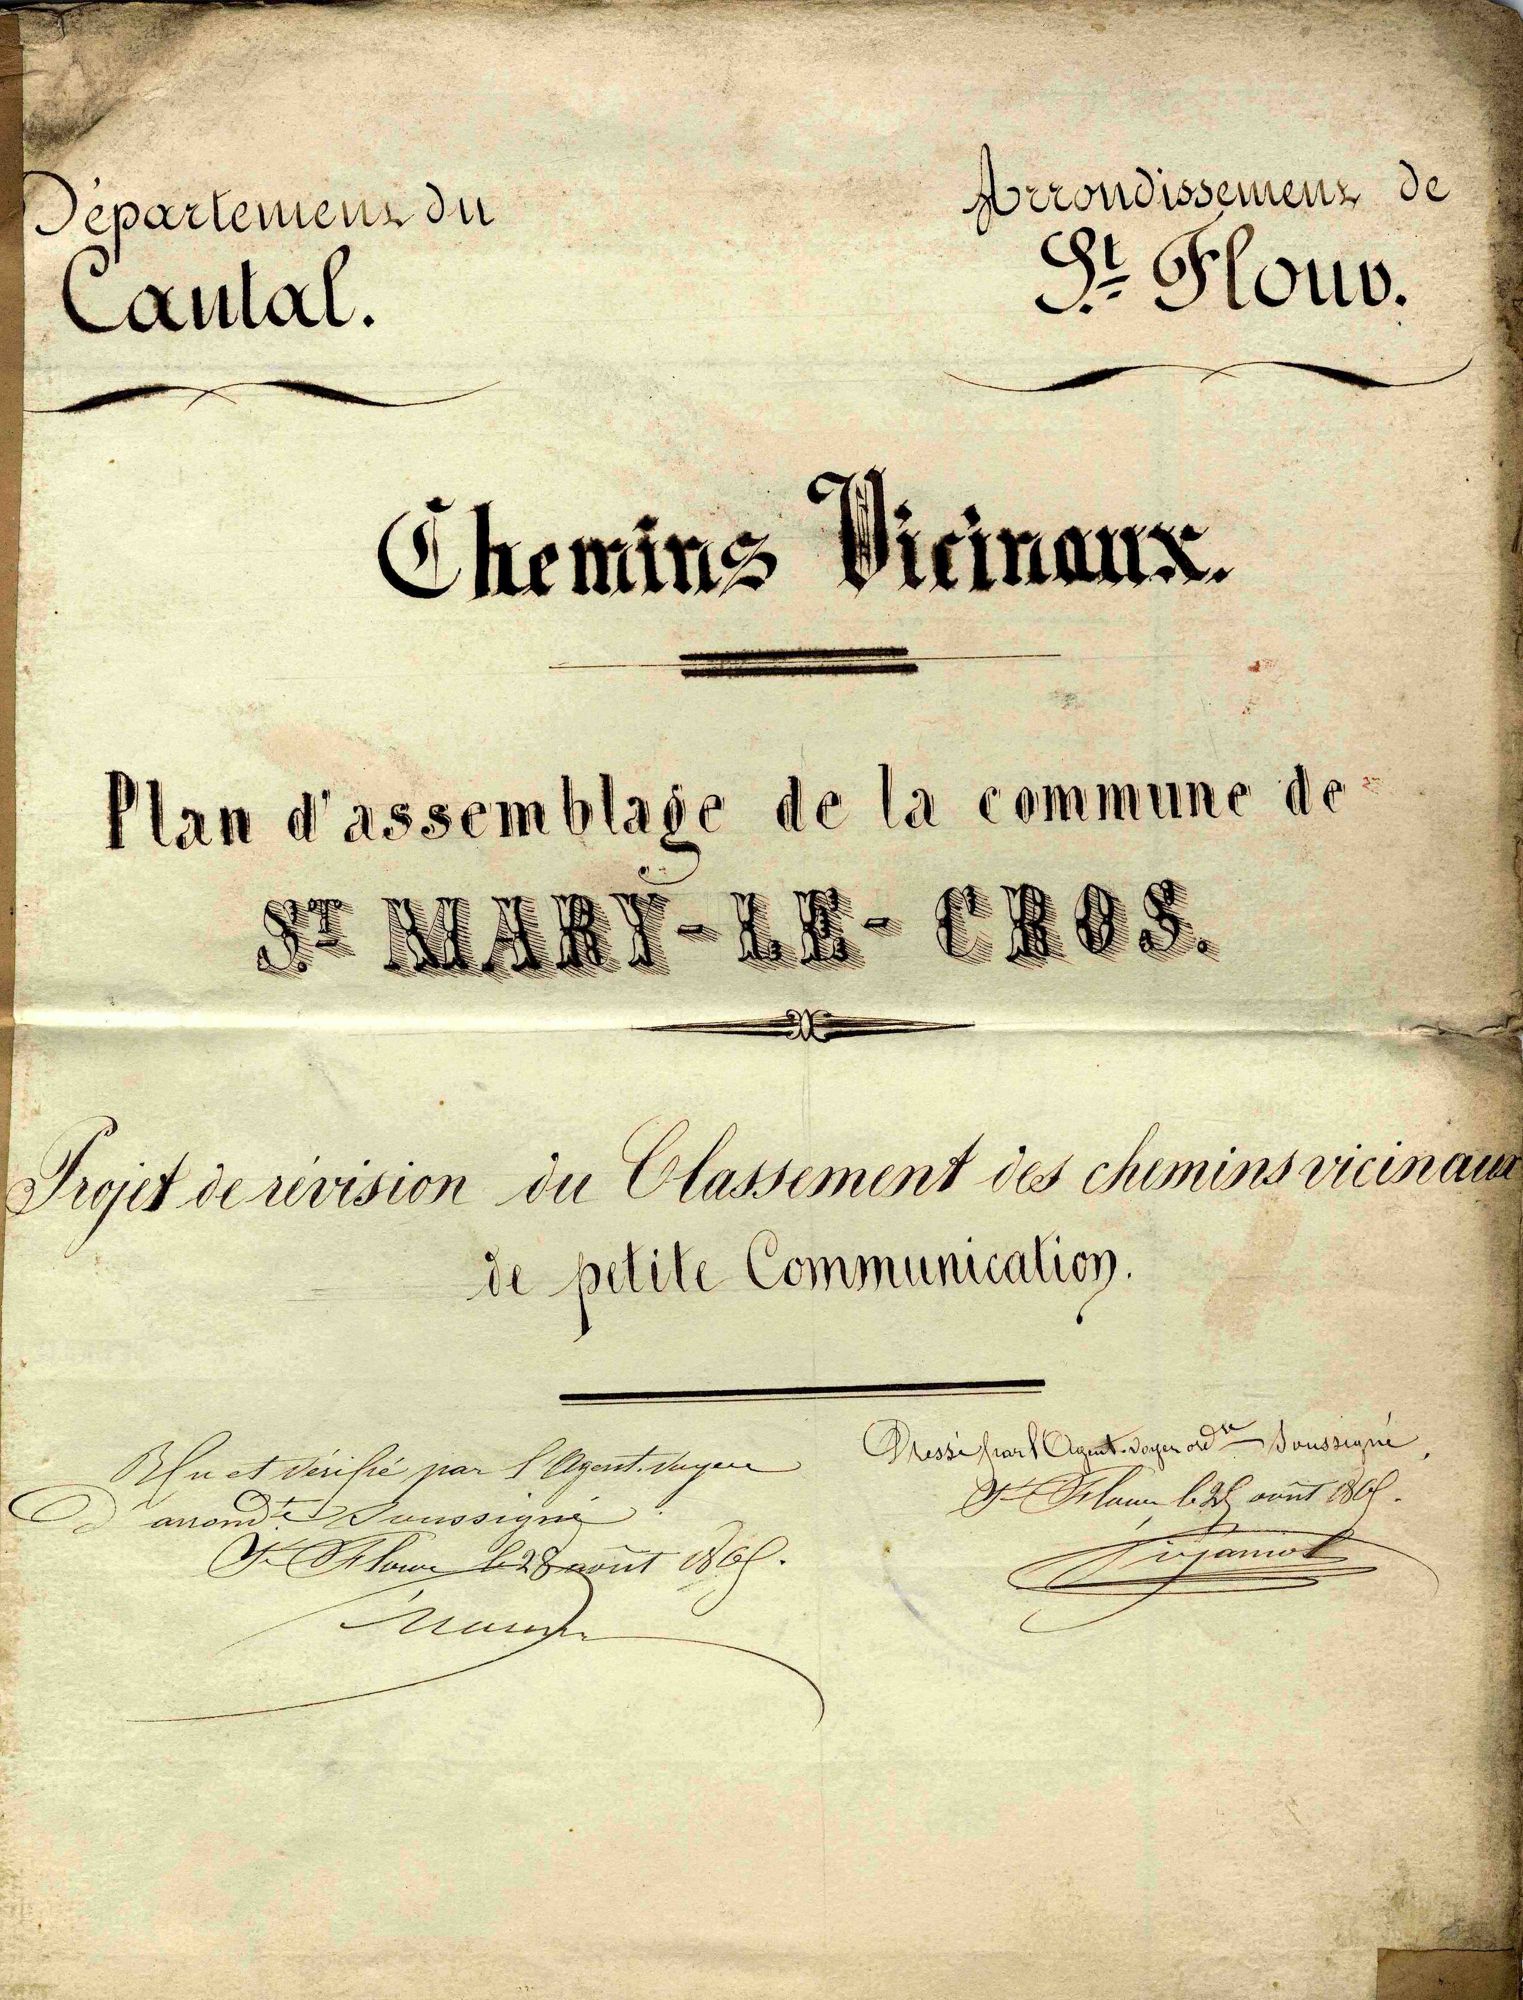 Département du
Cantal.
Arrondissement de
St. Flour.
Chemins Vicinaux.
Plan d'assemblage de la commune de
ST. MARY-LE-CROS.
Projet de révision du Classement des chemins vicinaux
de petite Communication.
Vu et vérifié par l'Agent-voyer
d'arrondt. Soussigné
St. Flour le 28 août 1865.
Dressé par l'Agent-voyer ordre Soussigné,
St. Flour le 25 août 1865.